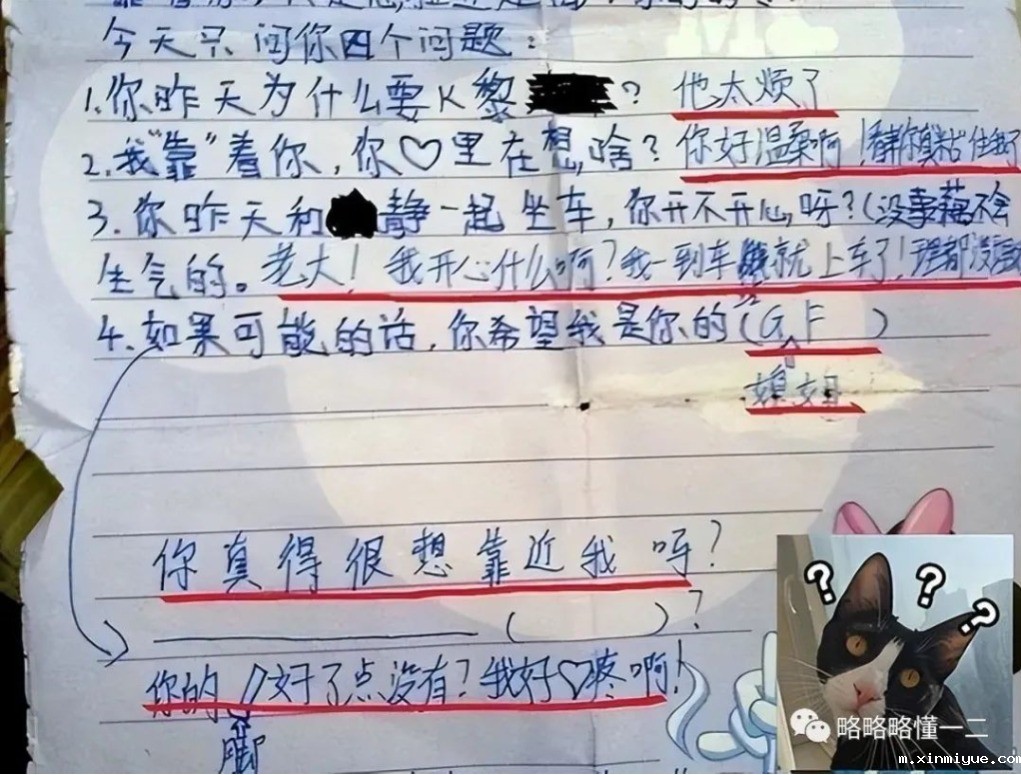 今天只问你四个问题:
1.你昨天为什么要K黎？ 他太烦了
2.我"靠"着你，你♡里在想啥？你好温柔啊！
3.你昨天和静一起坐车，你开不开心呀？(没事藕不会
生气的。老大！我开心什么啊？我一到车就上车了！理都没理
4.如果可能的话，你希望我是你的(G.F )
媳妇
你真得很想靠近我呀？
( )？
你的好了点没有？我好♡疼啊！
脚
略略略懂一二
m.xinmiyue.com